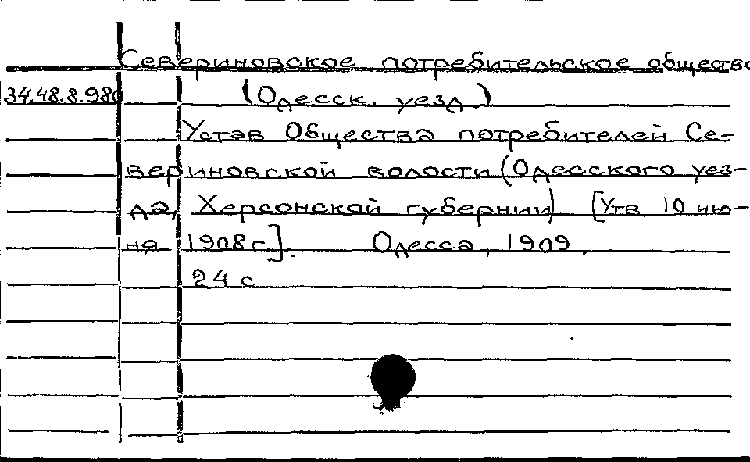 Севериновское потребительское общество
34.48.8.980 (Одесск. уезд)
Устав Общества потребителей Се-
вериновской волости (Одесского уез-
да, Херсонской губернии) [Утв 10 ию-
ня 1908 г]. Одесса, 1909.
24 с